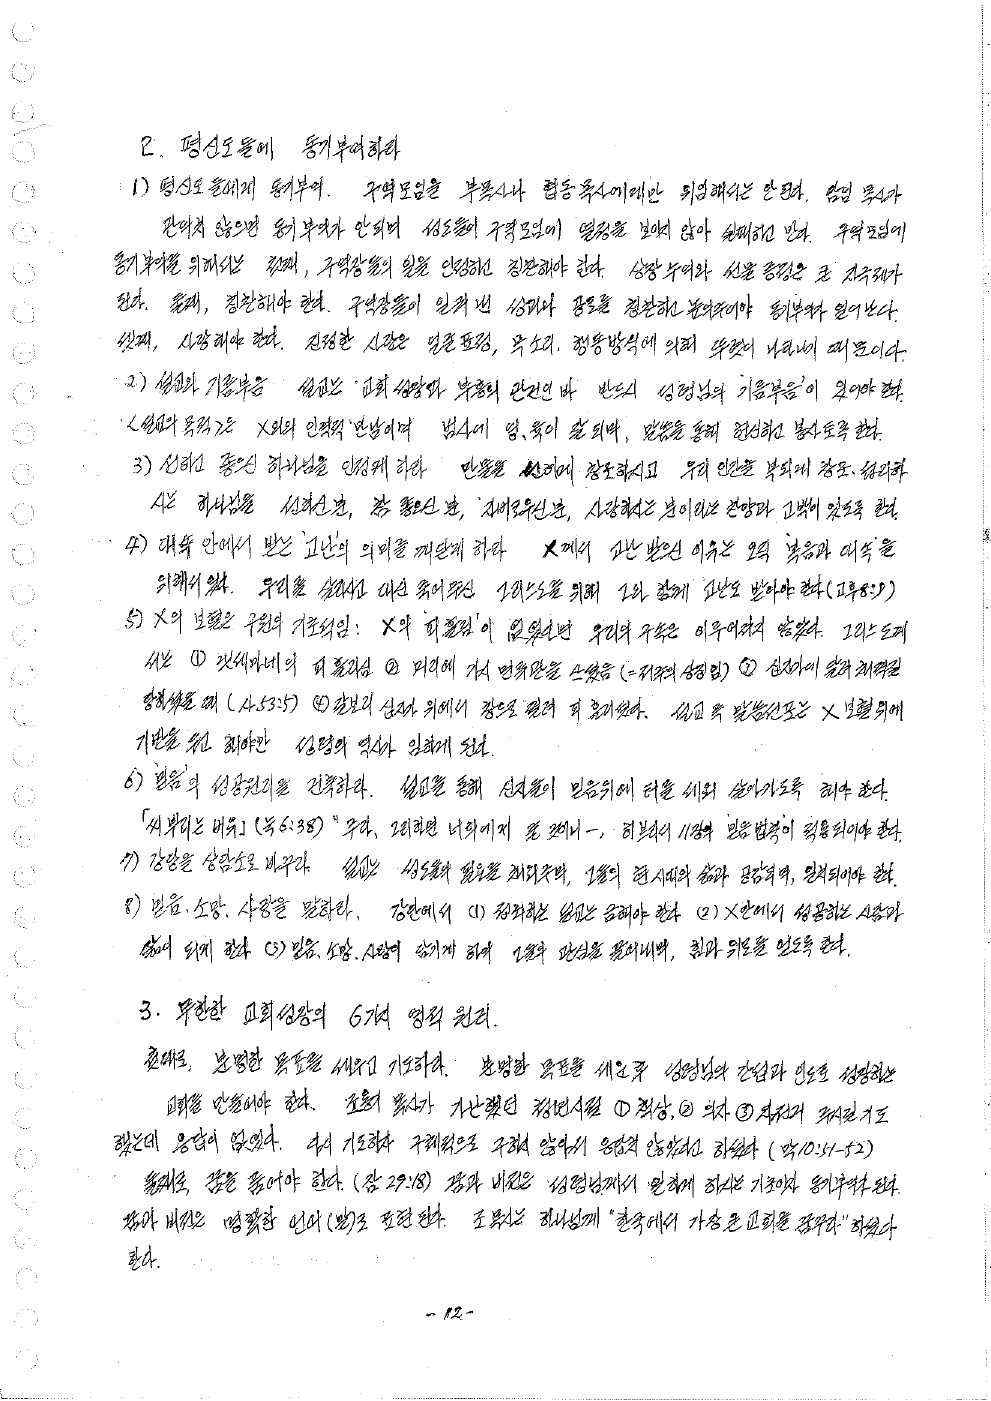 2. 평신도들에 동기부여하라
1) 평신도들에게 동기부여. 구역모임을 부목사나 협동목사에게만 위임해서는 안된다. 담임 목사가
관여치 않으면 동기부여가 안되며 성도들이 구역모임에 열정을 보이지 않아 실패하고 만다. 구역모임에
동기부여를 위해서는 첫째, 구역장들의 일을 인정하고 칭찬해야 한다. 상장 수여와 선물 증정은 큰 자극제가
된다. 둘째, 칭찬해야 한다. 구역장들이 일궈 낸 성과와 공로를 칭찬하고 높여주어야 동기부여가 일어난다.
셋째, 사랑해야 한다. 진정한 사랑은 얼굴표정, 목소리, 행동방식에 의해 뚜렷이 나타나기 때문이다.
2) 설교와 기름부음 설교는 교회성장과 부흥의 관건인 바 반드시 성령님의 '기름부음'이 있어야 한다.
<설교의 목적>은 X와의 인격적 만남이며 범사에 영,육이 잘 되며, 말씀을 통해 헌신하고 봉사토록 한다.
3) 선하고 좋으신 하나님을 인정케 하라 만물을 선하게 창조하시고 우리 인간을 복되게 창조, 섭리하
시는 하나님을 선하신 분, 참 좋으신 분, 자비로우신 분, 사랑하시는 분이라는 찬양과 고백이 있도록 한다.
4) 대속 안에서 받는 '고난'의 의미를 깨닫게 하라 X께서 고난 받으신 이유는 오직 '복음과 대속'을
위해서였다. 우리를 살리시고 대신 죽어주신 그리스도를 위해 그와 함께 고난도 받아야 한다(고후8:9)
5) X의 보혈은 구원의 기초석임: X의 '피흘림'이 없었다면 우리의 구속은 이루어지지 않았다. 그리스도께
서는 ① 겟세마네의 피흘리심 ② 머리에 가시 면류관을 쓰셨음(=저주의 상징임) ③ 십자가에 달려 채찍질
당하셨을 때 (사53:5) ④ 갈보리 십자가 위에서 창으로 찔려 피 흘리셨다. 설교 즉 말씀선포는 X 보혈위에
기반을 두고 해야만 성령의 역사가 임하게 된다.
6) '믿음'의 성공원리를 전폭하라. 설교를 통해 신자들이 믿음위에 터를 세워 살아가도록 해야 한다.
「씨 뿌리는 비유」(눅6:38) "주라, 그리하면 너희에게 줄 것이니-, 히브리서 11장의 '믿음법칙'이 적용되어야 한다.
7) 강단을 상담소로 바꾸라 설교는 성도들의 필요를 채워주며, 그들의 현 시대의 삶과 공감되며, 일치되어야 한다.
8) 믿음.소망.사랑을 말하라. 강단에서 (1) 정죄하는 설교는 금해야 한다 (2) X안에서 성공하는 사람과
삶이 되게 한다 (3) 믿음.소망.사랑이 담기게 하여 그들의 관심을 끌어내며, 힘과 위로를 얻도록 한다.
3. 무한한 교회성장의 6가지 영적 원리.
첫째로, 분명한 목표를 세우고 기도하라. 분명한 목표를 세운 후 성령님의 간섭과 인도로 성장하는
교회를 만들어야 한다. 조용기 목사가 가난했던 청년시절 ① 책상,② 의자 ③ 자전거 주시길 기도
했는데 응답이 없었다. 다시 기도하자 구체적으로 구하지 않아서 응답치 않았다고 하셨다 (막10:51-52)
둘째로, 꿈을 품어야 한다.(잠 29:18) 꿈과 비전은 성령님께서 일하게 하시는 기초이자 동기부여가 된다.
꿈과 비전은 명확한 언어(말)로 표현된다. 조 목사는 하나님께 "한국에서 가장 큰 교회를 꿈꾸라" 하셨다
한다.
- 12 -